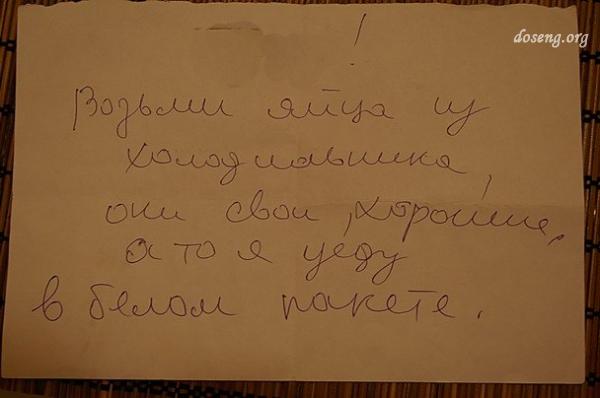 doseng.org
!
Возьми яйца из
холодильника,
они свои, хорошие,
а то я уеду
в белом пакете.